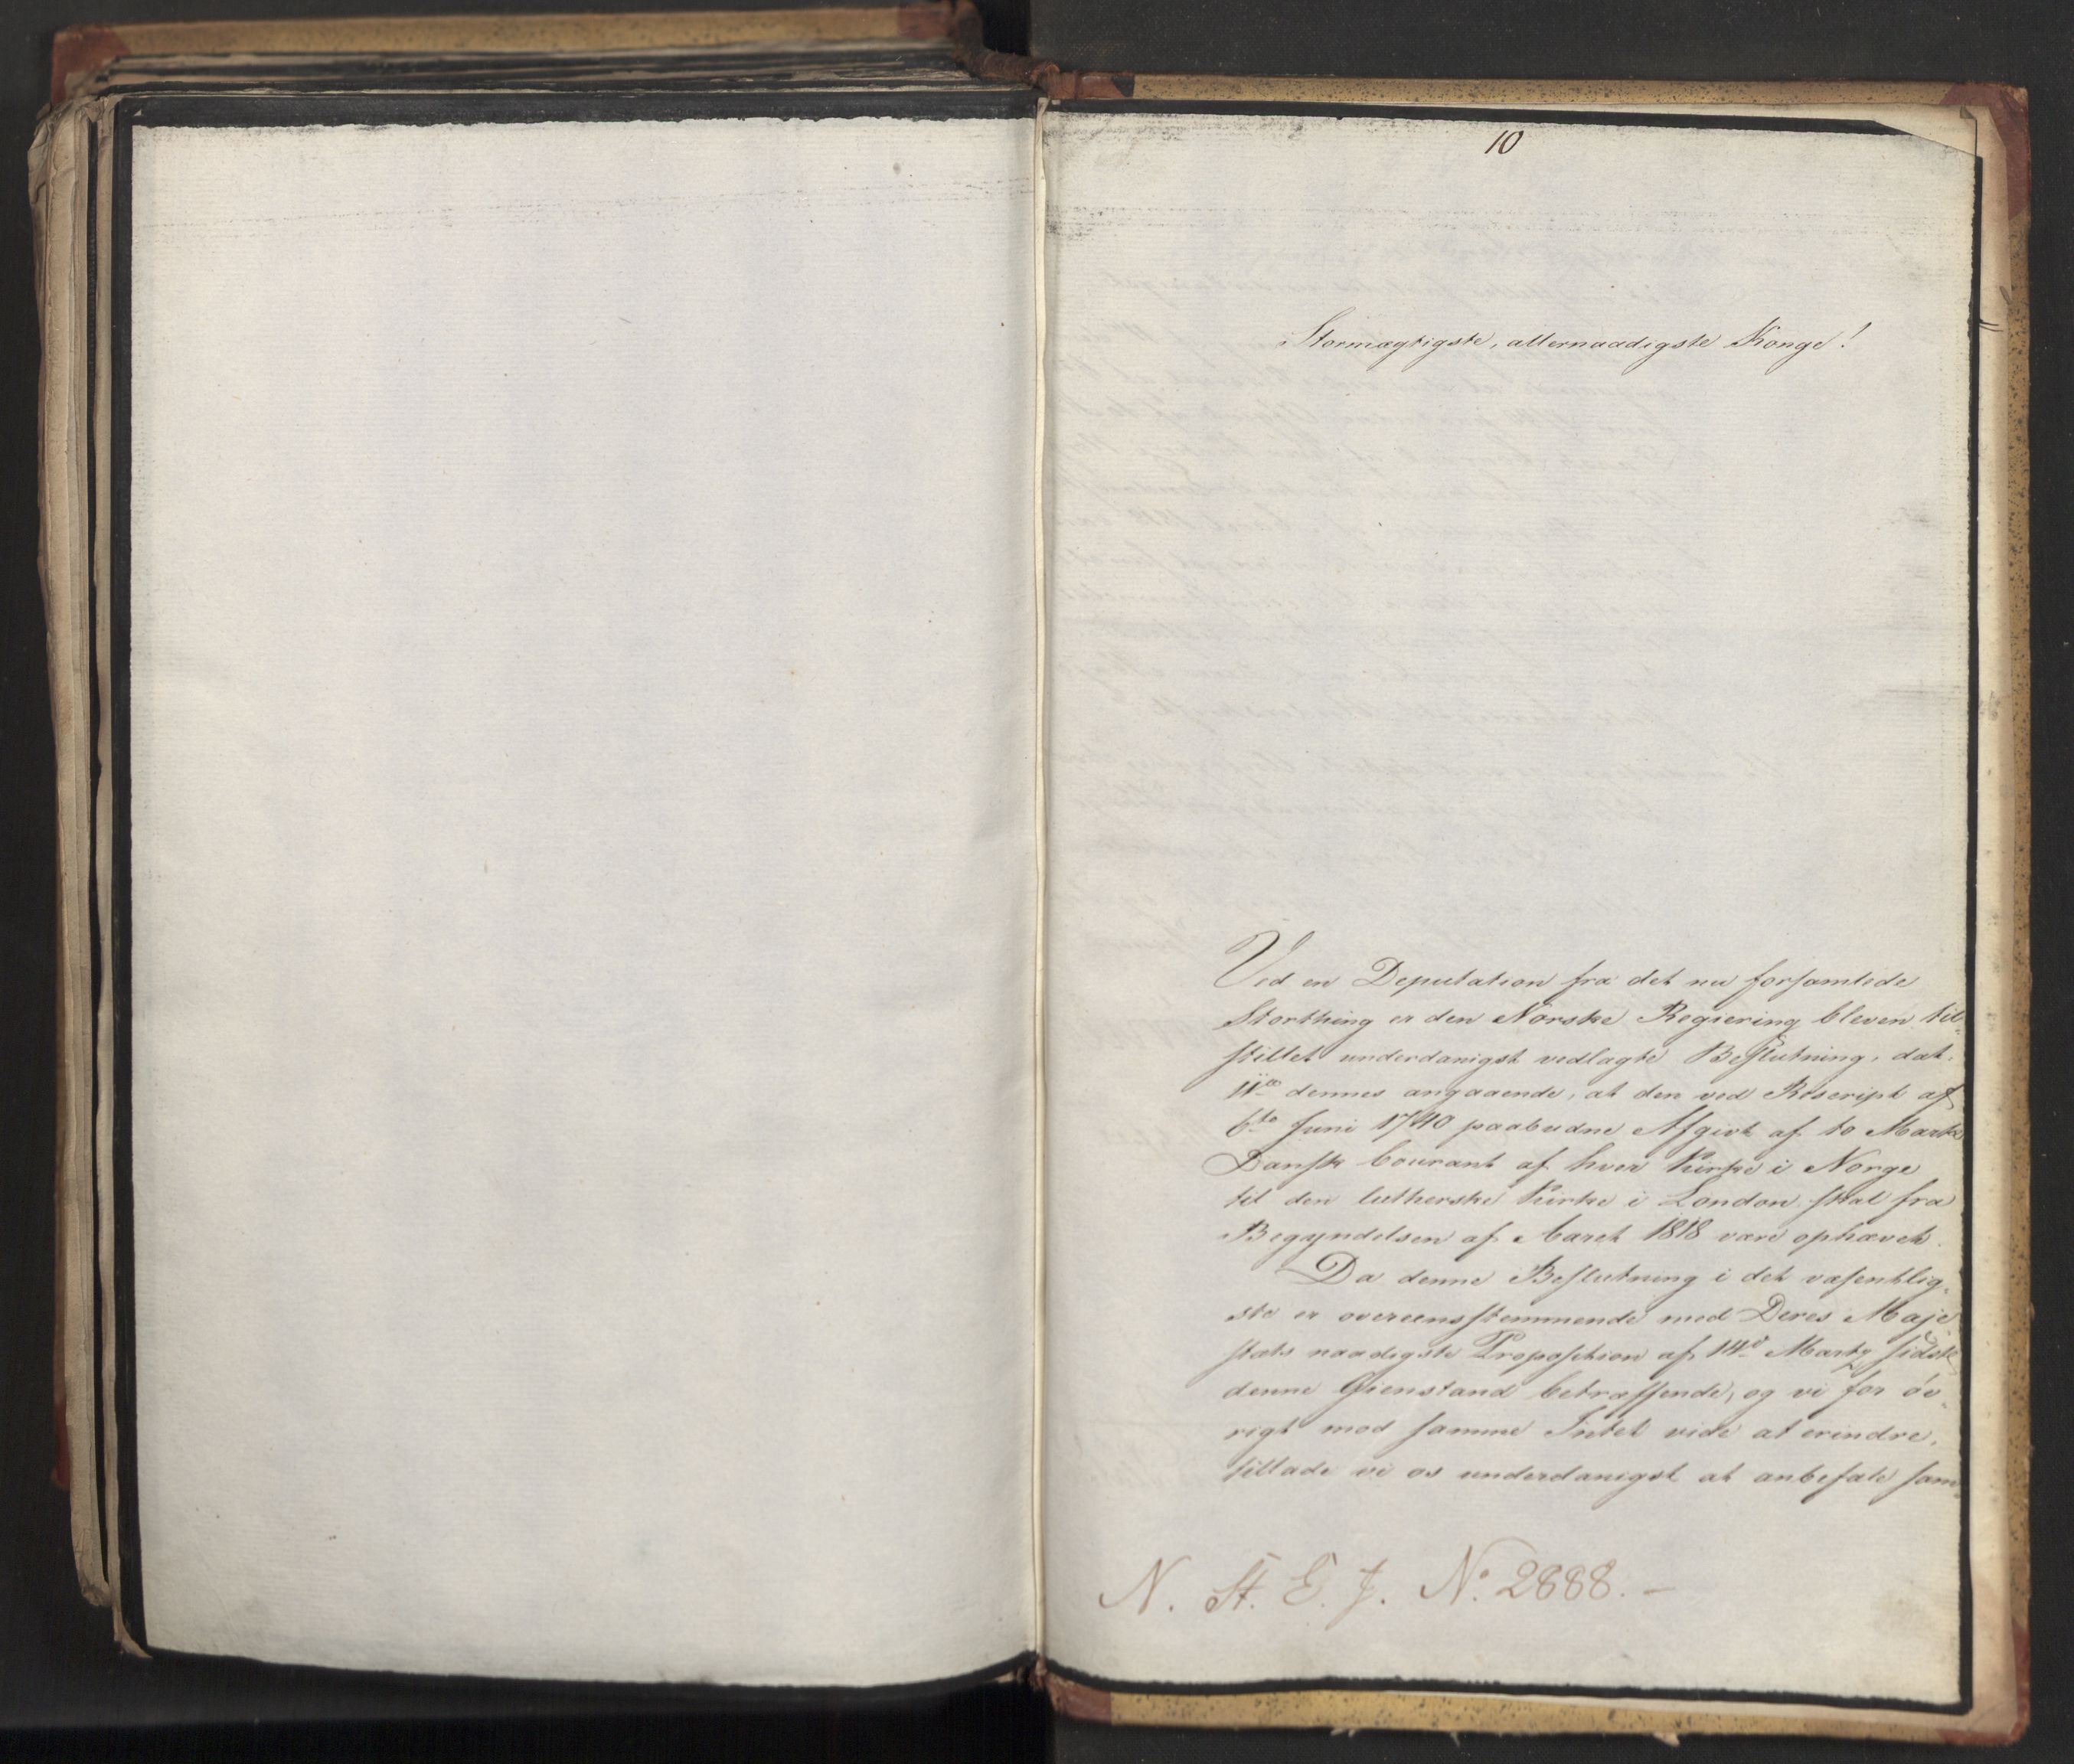 10
Stormægtigste, allernaadigste Konge!
Ved en Deputation fra det nu forsamlede
Storthing er den Norske Regiering bleven til-
stillet underdanigst vedlagte Beslutning, dat.
11te dennes angaaende, at den ved Rescript af
6te Juni 1740 paabudne Afgivt af to Mark
Dansk Courant af hver Kirke i Norge
til den lutherske Kirke i London skal fra
Begyndelsen af Aaret 1818 være ophævet.
Da denne Beslutning i det væsentlig-
ste er overeensstemmende med Deres Maje
stæts naadigste Proposition af 14d Martz sidstl
denne Gienstand betræffende, og vi for öv-
rigt mod samme Intet vide at erindre,
tillade vi os underdanigst at anbefale sam-
N. St. E. J. No. 2888. -